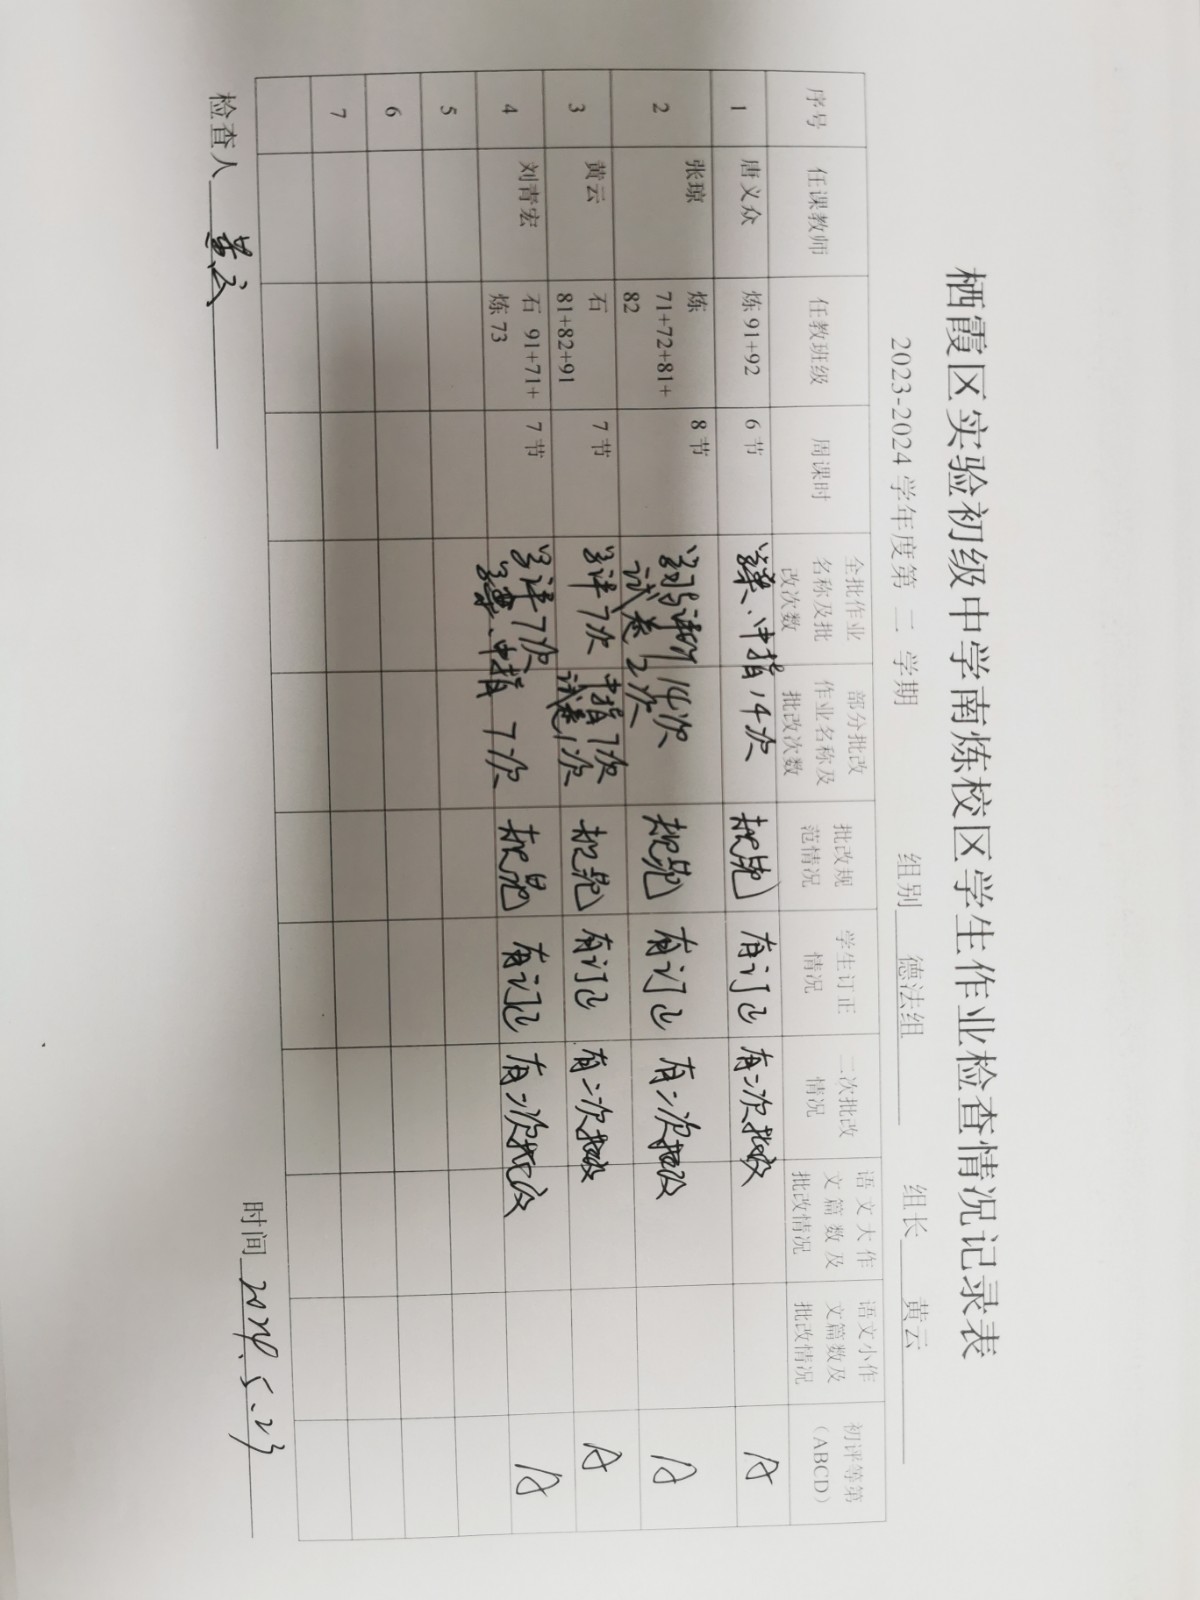 栖霞区实验初级中学南炼校区学生作业检查情况记录表
2023-2024 学年度第 二 学期 组别 德法组 组长 黄云
序号 任课教师 任教班级 周课时 全批作业名称及批改次数 部分批改作业名称及批改次数 批改规范情况 学生订正情况 二次批改情况 语文大作文篇数及批改情况 语文小作文篇数及批改情况 初评等第(ABCD)
1 唐义众 炼 91+92 6 节 中指 14次 规范 有订正 有二次批改 A
2 张琼 炼 71+72+81+82 8 节 14次 试卷 2次 规范 有订正 有二次批改 A
3 黄云 石 81+82+91 7 节 学评 7次 中指 7次 试卷 1次 规范 有订正 有二次批改 A
4 刘青宏 石 91+71+炼 73 7 节 学评 7次 中指 7次 规范 有订正 有二次批改 A
5
6
7
检查人 黄云 时间 2024.5.23